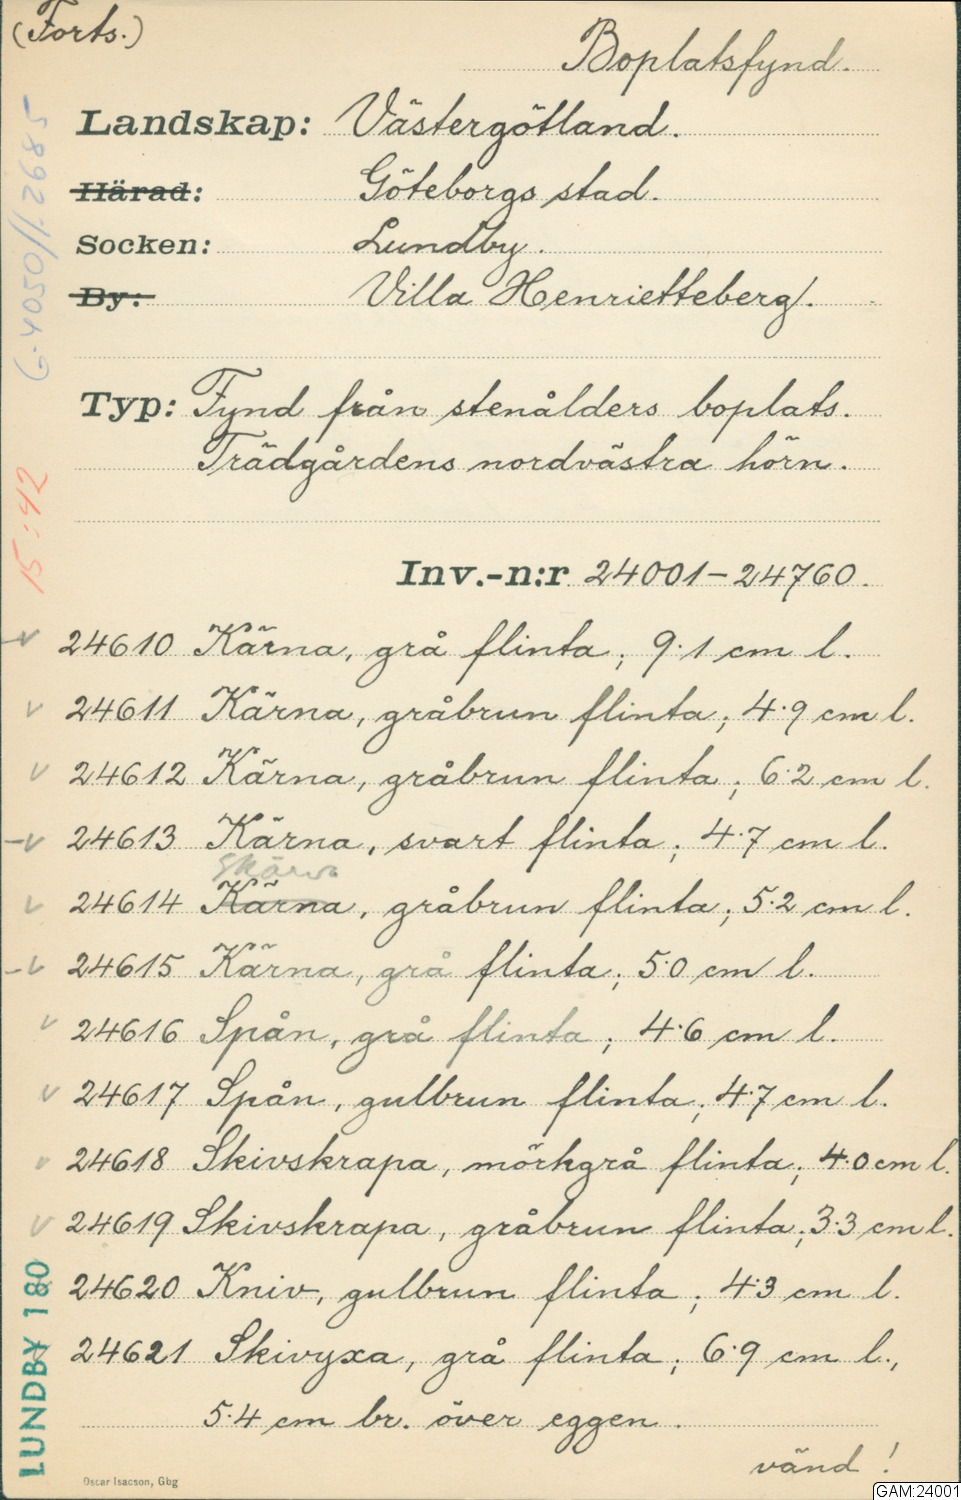 (Forts.)
Boplatsfynd.
Landskap: Västergötland.
Härad: Göteborgs stad.
Socken: Lundby.
By: Villa Henrietteberg.
Typ: Fynd från stenålders boplats.
Trädgårdens nordvästra hörn.
Inv.-n:r 24001-24760.
v 24610 Kärna, grå flinta; 9.1 cm l.
v 24611 Kärna, gråbrun flinta; 4.9 cm l.
v 24612 Kärna, gråbrun flinta; 6.2 cm l.
-v 24613 Kärna, svart flinta; 4.7 cm l.
Skärva
v 24614 Kärna, gråbrun flinta; 5.2 cm l.
-v 24615 Kärna, grå flinta; 5.0 cm l.
v 24616 Spån, grå flinta; 4.6 cm l.
v 24617 Spån, gulbrun flinta; 4.7 cm l.
v 24618 Skivskrapa, mörkgrå flinta; 4.0 cm l.
v 24619 Skivskrapa, gråbrun flinta; 3.3 cm l.
24620 Kniv, gulbrun flinta; 4.3 cm l.
24621 Skivyxa, grå flinta; 6.9 cm l.,
5.4 cm br. över eggen.
vänd!
Oscar Isacson, Gbg
GAM:24001
15:42
LUNDBY 180